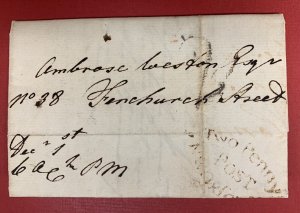 Ambrose Weston Esqr
No 38 Fenchurch Street
Decr 1st
6 PM
Two Penny
POST